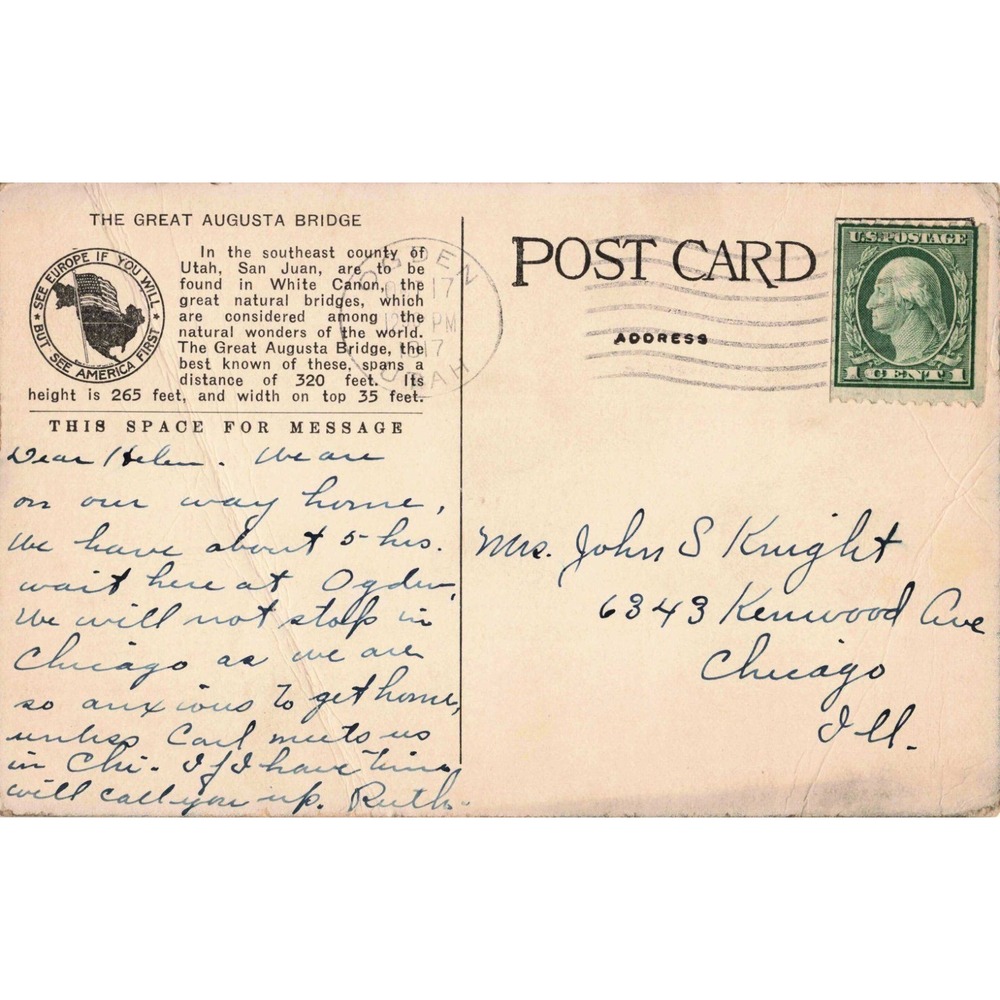 THE GREAT AUGUSTA BRIDGE
SEE EUROPE IF YOU WILL
BUT SEE AMERICA FIRST
In the southeast county of
Utah, San Juan, are to be
found in White Canon, the
great natural bridges, which
are considered among the
natural wonders of the world.
The Great Augusta Bridge, the
best known of these, spans a
distance of 320 feet. Its
height is 265 feet, and width on top 35 feet.
THIS SPACE FOR MESSAGE
Dear Helen. We are
on our way home,
We have about 5 hrs.
wait here at Ogden,
We will not stop in
Chicago as we are
so anxious to get home,
unless Carl meets us
in Chi. If I have time
will call you up. Ruth.
OGDEN
17
PM
UTAH
POST CARD
ADDRESS
U.S. POSTAGE
1 CENT 1
Mrs. John S Knight
6343 Kenwood Ave
Chicago
Ill.